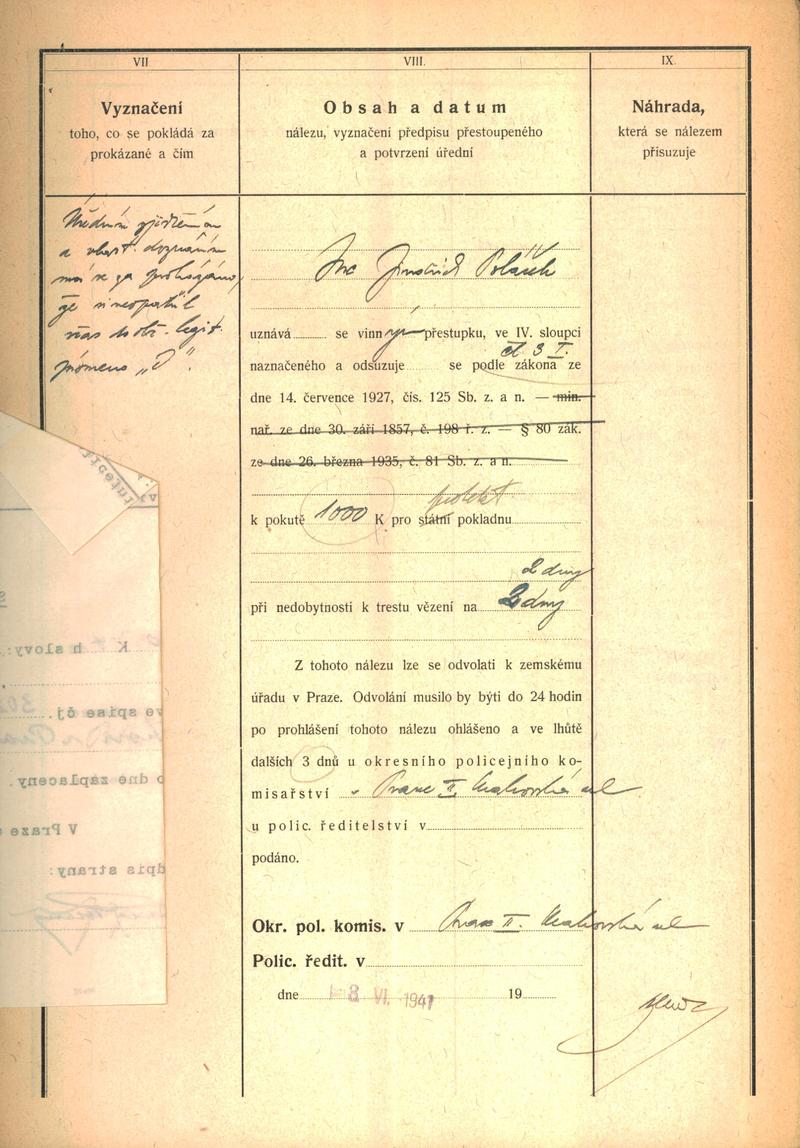 VII.
Vyznačení
toho, co se pokládá za
prokázané a čím
VIII.
Obsah a datum
nálezu, vyznačení předpisu přestoupeného
a potvrzení úřední
IX.
Náhrada,
která se nálezem
přisuzuje
Úředním zjištěním
a vlast. doznáním
má se za prokázáno,
že si neopatřil
včas legit.
písmeno „J“.
Jindřich Polášek
uznává se vinným přestupku, ve IV. sloupci
čl 3 I.
naznačeného a odsuzuje se podle zákona ze
dne 14. července 1927, čís. 125 Sb. z. a n. — min.
nař. ze dne 30. září 1857, č. 198 ř. z. — § 80 zák.
ze dne 26. března 1935, č. 81 Sb. z. a n.
protekt
k pokutě 1000 K pro státní pokladnu
2 dny
při nedobytnosti k trestu vězení na 2 dny
Z tohoto nálezu lze se odvolati k zemskému
úřadu v Praze. Odvolání musilo by býti do 24 hodin
po prohlášení tohoto nálezu ohlášeno a ve lhůtě
dalších 3 dnů u okresního policejního ko-
misařství v Praze II, Krakovská ul
u polic. ředitelství v
podáno.
Okr. pol. komis. v Praze II. Krakovská ul
Polic. ředit. v
dne 8 VI. 1941 19
K h slovy:
ve spise čj.
o dne zaplaceny.
V Praze
dpis strany: